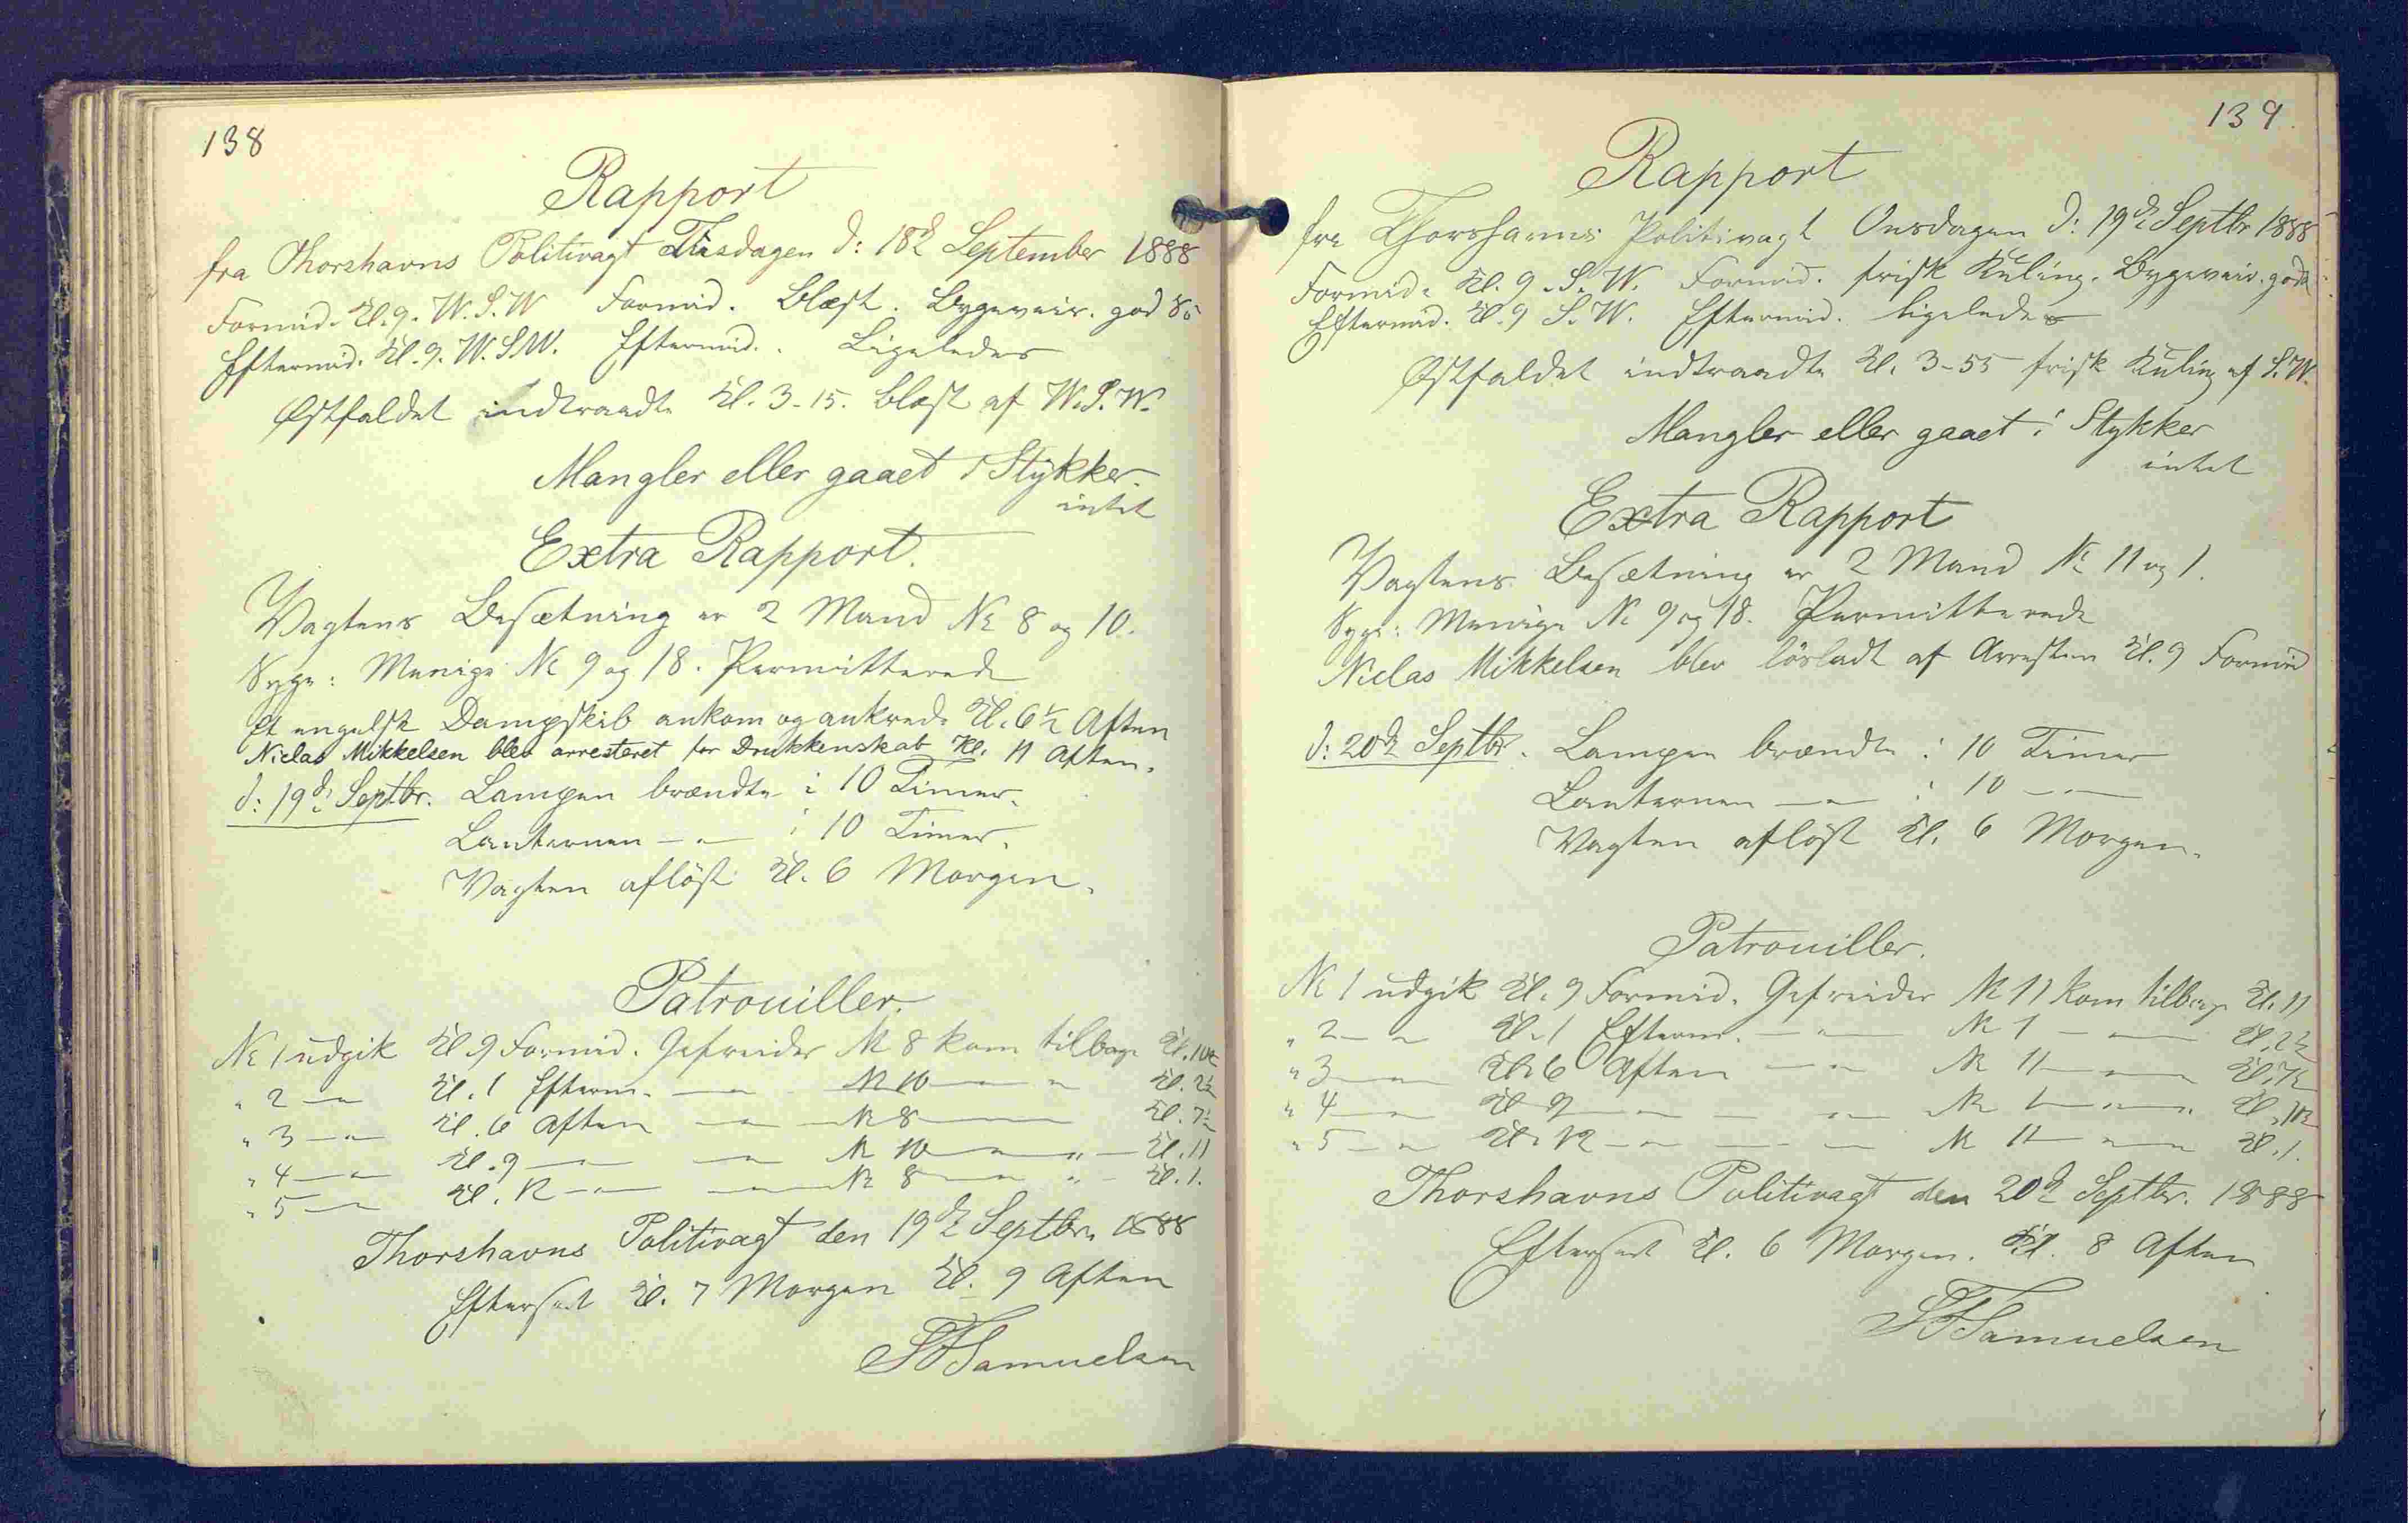 138
Rapport
fra Thorshavns Politivagt Tirsdagen d: 18d September 1888
Formid. Kl. 9. W.S.W Formid. blæst. Bygeveir. god
Eftermid. Kl. 9. W.S.W. Eftermid. Ligeledes
Østfaldet indtraadte Kl. 3-15. blæst af W.S.W.
Mangler eller gaaet i Stykker
intet
Extra Rapport.
Vagtens Besætning er 2 Mand No 8 og 10.
Syge: Menige No 9 og 18. Permitterede
Et engelsk Dampskib ankom og ankrede Kl. 6½ Aften
Niclas Mikkelsen blev arresteret for Drukkenskab Kl. 11 Aften.
d: 19d Septbr. Lampen brændte i 10 Timer.
Lanternen — " — i 10 Timer.
Vagten afløst Kl. 6 Morgen.
Patrouiller.
No 1 udgik Kl. 9 Formid. Gefreider No 8 kom tilbage Kl.
" 2 — " Kl. 1 Efterm. — " — No 10 — " — " Kl. 2½
" 3 — " — Kl. 6 Aften — " — No 8 — " — Kl. 7½
" 4 — " — Kl. 9 — " — — " — No 10 — " — " — Kl. 11
" 5 — " — Kl. 12 — " — — " — No 8 — " — " — Kl. 1.
Thorshavns Politivagt den 19d Septbr. 1888
Efterseet Kl. 7 Morgen Kl. 9 Aften
Samuelsen
139.
Rapport
fra Thorshavns Politivagt Onsdagen d: 19d Septbr 1888
Formid. Kl. 9. S.W. Formid. frisk Kuling. Bygeveir. god
Eftermid. Kl. 9 S.W. Eftermid. ligeledes
Østfaldet indtraadte Kl. 3-55 frisk Kuling af S.W.
Mangler eller gaaet i Stykker
intet
Extra Rapport
Vagtens Besætning er 2 Mand No 11 og 1.
Syge: Menige No 9 og 18. Permitterede
Niclas Mikkelsen blev løsladt af Arresten Kl. 9 Formid
d: 20d Septbr. Lampen brændte i 10 Timer
Lanternen — " — i 10 — " —
Vagten afløst Kl. 6 Morgen.
Patrouiller.
No 1 udgik Kl. 9 Formid. Gefreider No 11 kom tilbage Kl. 11
" 2 — " Kl. 1 Efterm. — " — No 1 — " — Kl. 2½
" 3 — " — Kl. 6 Aften — " No 11 — " — Kl. 7½
" 4 — " — Kl. 9 — " — — " — No 1 — " — " Kl.
" 5 — " Kl. 12 — " — — " — No 11 — " — Kl. 1.
Thorshavns Politivagt den 20d Septbr. 1888
Efterseet Kl. 6 Morgen. Kl. 8 Aften
Samuelsen